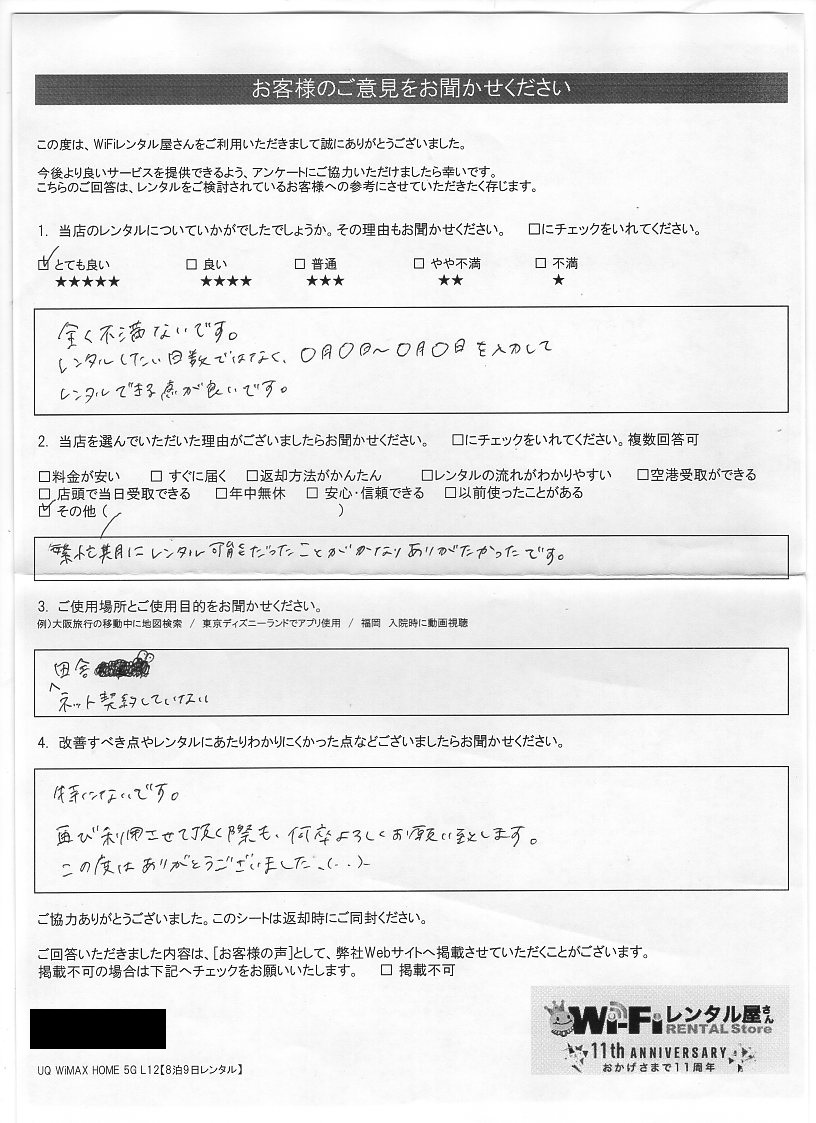 お客様のご意見をお聞かせください
この度は、WiFiレンタル屋さんをご利用いただきまして誠にありがとうございました。
今後より良いサービスを提供できるよう、アンケートにご協力いただけましたら幸いです。
こちらのご回答は、レンタルをご検討されているお客様への参考にさせていただきたく存じます。
1. 当店のレンタルについていかがでしたでしょうか。その理由もお聞かせください。 □にチェックをいれてください。
☑ とても良い □ 良い □ 普通 □ やや不満 □ 不満
★★★★★ ★★★★ ★★★ ★★ ★
全く不満ないです。
レンタルしたい日数ではなく、〇月〇日〜〇月〇日を入力して
レンタルできる点が良いです。
2. 当店を選んでいただいた理由がございましたらお聞かせください。 □にチェックをいれてください。複数回答可
□料金が安い □ すぐに届く □返却方法がかんたん □レンタルの流れがわかりやすい □空港受取ができる
□ 店頭で当日受取できる □年中無休 □ 安心・信頼できる □以前使ったことがある
☑ その他 ( )
繁忙期にレンタル可能だったことがかなりありがたかったです。
3. ご使用場所とご使用目的をお聞かせください。
例)大阪旅行の移動中に地図検索 / 東京ディズニーランドでアプリ使用 / 福岡 入院時に動画視聴
田舎
ネット契約していない
4. 改善すべき点やレンタルにあたりわかりにくかった点などございましたらお聞かせください。
特にないです。
再び利用させて頂く際も、何卒よろしくお願い致します。
この度はありがとうございました。(..)
ご協力ありがとうございました。このシートは返却時にご同封ください。
ご回答いただきました内容は、[お客様の声]として、弊社Webサイトへ掲載させていただくことがございます。
掲載不可の場合は下記へチェックをお願いいたします。 □ 掲載不可
Wi-Fiレンタル屋さん
RENTAL Store
11th ANNIVERSARY
おかげさまで11周年
UQ WiMAX HOME 5G L12【8泊9日レンタル】